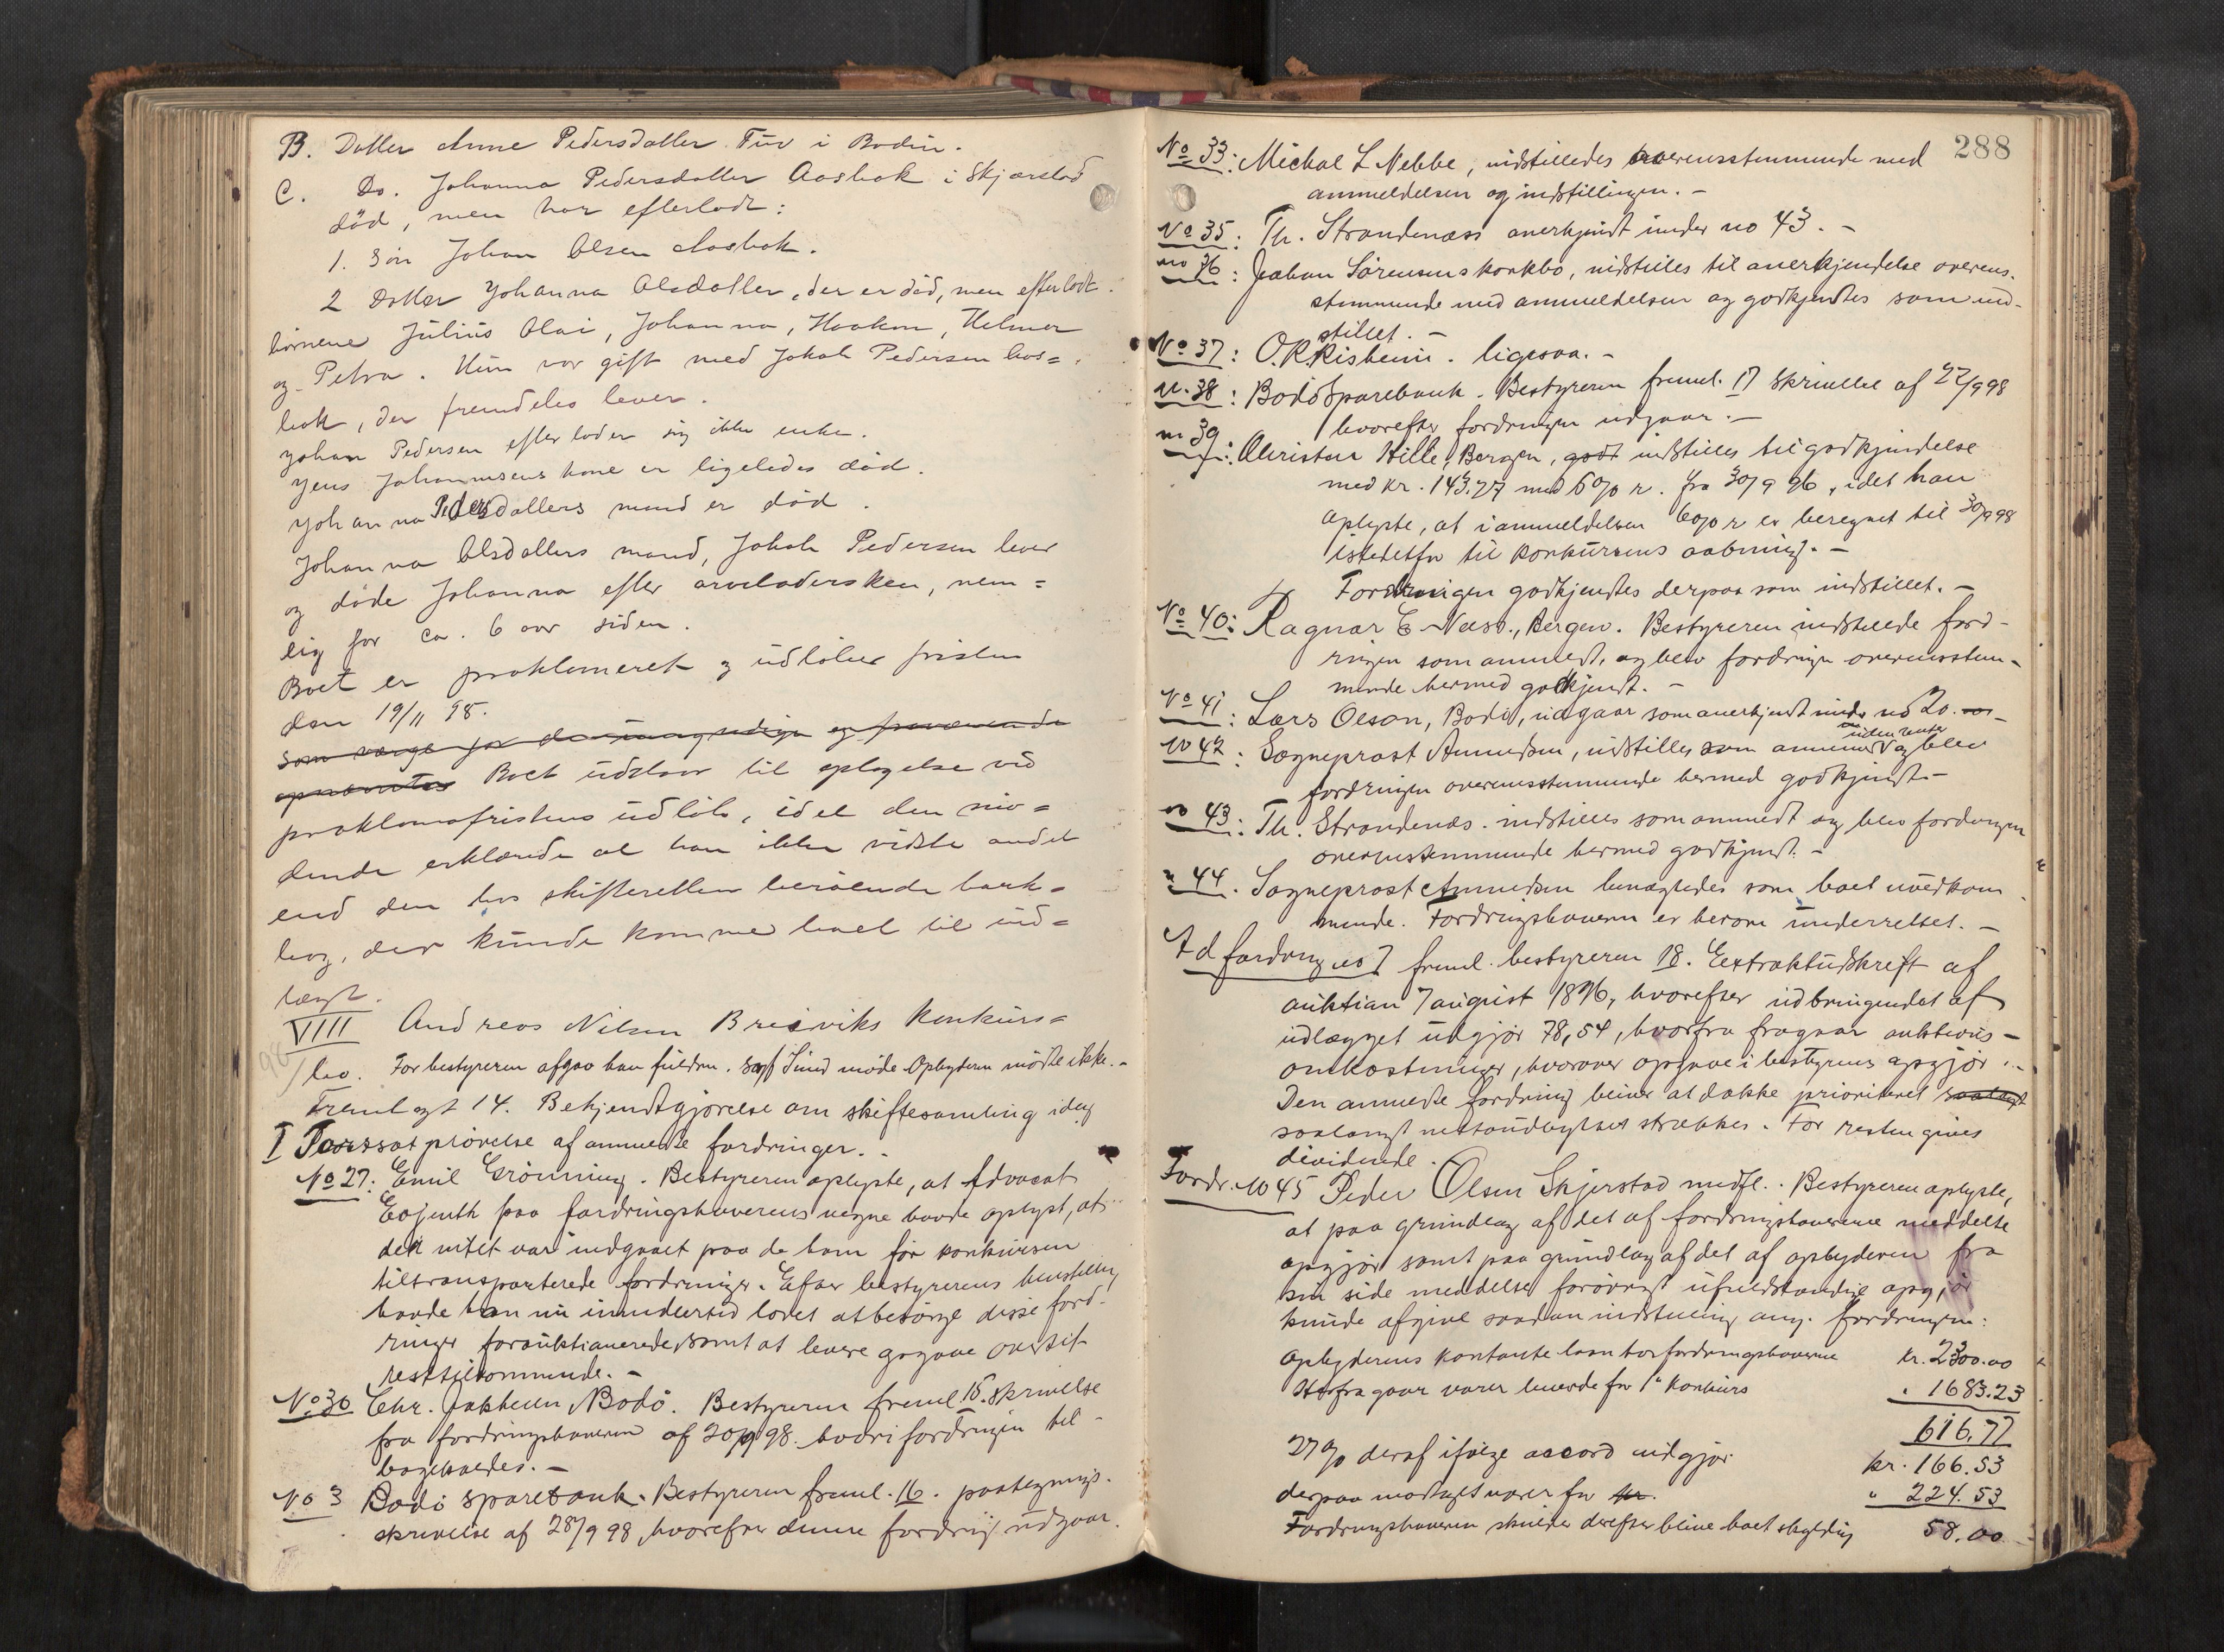 B. Datter Anne Pedersdatter Tuv i Bodin.
C. Do. Johanna Pedersdatter Aasbak i Skjærstad
død, men har efterladt:
1. Søn Johan Olsen Aasbak.
2 Datter Johanna Olsdatter, der er død, men efterlodt
børnene Julius Olai, Johanna, Haakon, Helmer
og Petra. Hun var gift med Jakob Pedersen
, der fremdeles lever.
Johan Pedersen efterlader sig ikke enke.
Jens Johannesens kone er ligeledes død.
Johanna Pedersdatters mand er død.
Johanna Olsdatters mand, Jakob Pedersen lever
og døde Johanna efter arveladersken, nem=
lig for ca. 6 aar siden.
Boet er proklameret og udløber fristen
den 19/11 98.
som værge for de umyndige og fraværende
opnævntes Boet udstaar til optagelse ved
proklamafristens udløb, idet den mø=
dende erklærede at han ikke vidste andet
end den hos skifteretten beroende bank=
bog, der kunde komme boet til ind=
tægt.
VIII Andreas Nilsen Breivik Konkurs=
bo. For bestyreren afgav han fuldm. Opbyderen mødte ikke. -
Fremlagt 14. Bekjendtgjørelse om skiftesamling idag
I Fortsat prøvelse af anmeldte fordringer. -
No 27: Emil Grönning. Bestyreren oplyste, at Advocat
paa fordringshaverens vegne havde oplyst, at
der intet var indgaaet paa de ham før konkursen
tiltransporterede fordringer. Efter bestyrerens henstilling
havde han nu imidlertid lovet at besørge disse ford-
ringer forauktionerede, samt at levere opgave over sit
resttilkommende. -
No 30 Chr. Jakhelln Bodø. Bestyreren freml. 15. skrivelse
fra fordringshaveren af 20/9 98. hvori fordringen til-
bagekaldes. -
No 3 Bodø sparebank. Bestyreren freml. 16. paategnings-
skrivelse af 28/9 98, hvorefter denne fordring udgaar.
288
No 33: Michal L Nebbe, indstilledes overensstemmende med
anmeldelsen og indstillingen. -
No 35: Th. Strandenæss anerkjendt under no 43. -
no 36: Jakob Sörensens konkbo, indstilles til anerkjendelse overens-
stemmende med anmeldelsen og godkjendtes som ind-
stillet. -
No 37: O. R. Kisbeim. ligesaa. -
n. 38: Bodø Sparebank. Bestyreren freml. 17 skrivelse af 27/9 98
hvorefter fordringen udgaar. -
n 39: Christian Hille, Bergen, godt indstilles til godkjendelse
med kr. 143.77 med 6 % r. fra 30/9 96, idet han
oplyste, at i anmeldelsen 6 % r er beregnet til 30/9 98
istedetfor til konkursens aabning. -
Fordringen godkjendtes derpaa som indstillet. -
No 40: Ragnar E Næss, Bergen. Bestyreren indstillede ford-
ringen som anmeldt, og blev fordringen overensstem-
mende hermed godkjendt. -
No 41: Lars Olsen, Bodø, udgaar som anerkjendt under no 20. -
uden rente
No 42: Sogneprost Amundsen, indstilles som anmeldt og blev
fordringen overensstemmende hermed godkjendt -
no 43: Th. Strandenæs. indstilles som anmeldt og blev fordringen
overensstemmende hermed godkjendt. -
n 44. Sogneprost Amundsen benægtedes som boet uvedkom
mende. Fordringshaveren er herom underrettet. -
Ad fordring no 7 freml. bestyreren 18. Extraktudskrift af
auktion 7 august 1896, hvorefter udbringendet af
udlægget udgjør 78,54, hvorfra fragaar auktions-
omkostninger, hvorover opgave i bestyrerens opgjør.
Den anmeldte fordring bliver at dække prioriteret saalangt
saalangt nettoudbyttet strækker. For resten gives
dividende.
Fordr. no 45 Peder Olsen Skjerstad medfl. Bestyreren oplyste,
at paa grundlag af det af fordringshaverne meddelte
opgjør samt paa grundlag af det af opbyderen fra
sin side meddelte forøvrigt ufuldstændige opgjør
kunde afgive saadan indstilling ang. fordringen:
Opbyderens kontante laan hos fordringshaverne kr. 2300.00
Herfra gaar varer leverede før 1ste konkurs " 1683.23
616.77
27 % deraf ifølge accord udgjør kr. 166.53
derpaa modtaget varer for kr. " 224.53
Fordringshaveren skulde derefter blive boet skyldig 58.00